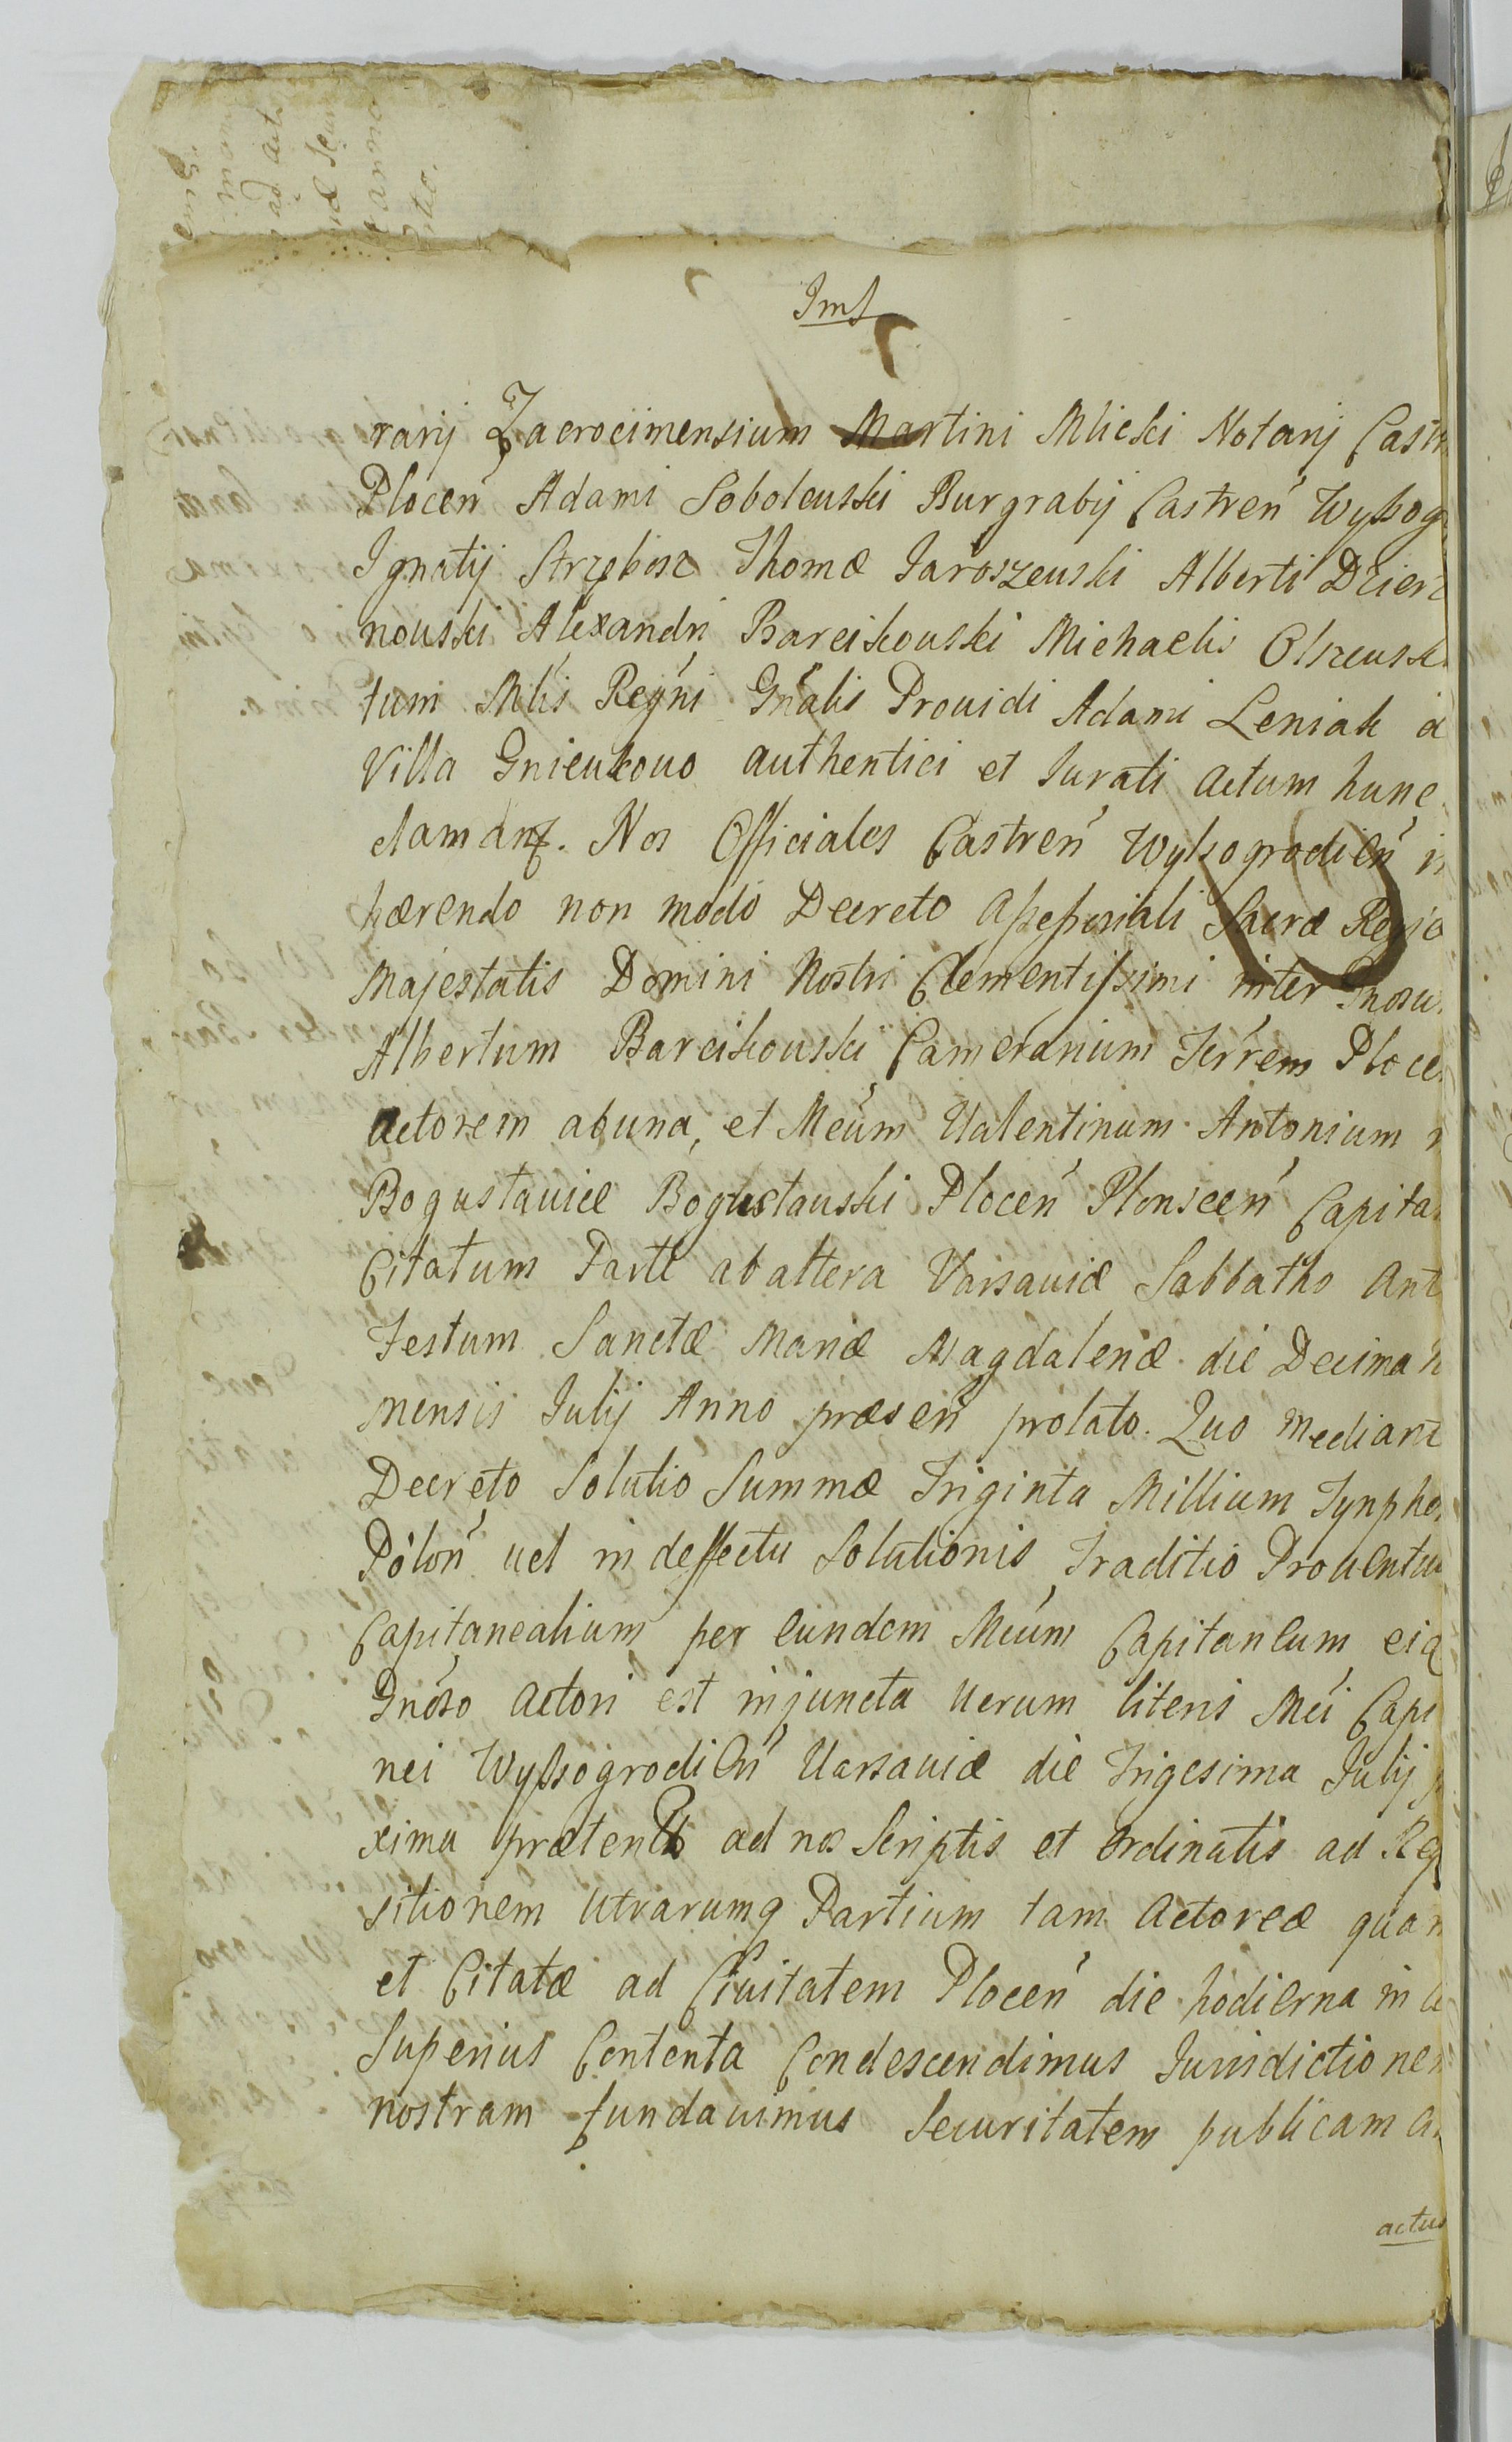 Ims
rarij Zacrocimensium Martini Mlicki Notarij Castr
Plocen Adami Soboleuski Burgrabij Castren Wyssog
Ignatij Strzębosz Thomæ Jaroszeuski Alberti Dzierz
nouski Alexandri Barcikouski Michaelis Olszeusk
tum Mlis Regni Gnalis Prouidi Adami Leniak a
Villa Gnieukouo authentici et Jurati actum hunc
clamanț. Nos Officiales Castren Wyssogrodien in
hærendo non modo Decreto Assessoriali Sacræ Regiæ
Majestatis Domini Nostri Clementissimi inter Gnosu
Albertum Barcikouski Camerarium Terrem Ploce
Actorem ab una, et Mcum Ualentinum Antonium
Bogustauice Bogustauski Plocen Plonscen Capita
Citatum Parte ab altera Varsauiæ Sabbatho Ant
Festum Sanctæ Mariæ Magdalenæ die Decima n
mensis Julij Anno præsen prolato. Quo mediant
Decreto Solutio Summæ Triginta Millium Tynpho
Polon uel in deffectu Solutionis Traditio Prouentuu
Capitanealium per eundem Mcum Capitaneum eid
Gnoso Actori est injuncta uerum literis Mci Capi
nei Wyssogrodien Uarsauiæ die Trigesima Julij p
xima præterita ad nos Scriptis et ordinatis ad Req
sitionem Utrarumq Partium tam Actoreæ quam
et Citatæ ad Ciuitatem Plocen die hodierna in
Superius Contenta Condescendimus Jurisdictionem
nostram fundauimus Securitatem publicam
actus